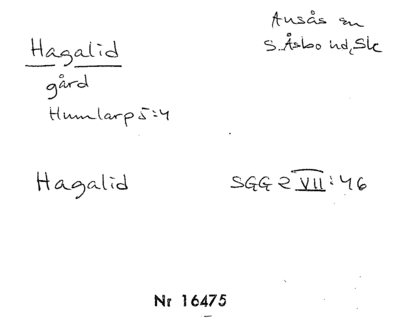 Hagalid
gård
Humlarp 5:4
Ausås sn
S. Åsbo hd, Sk
Hagalid
SGG 2 VII: 46
Nr 16475